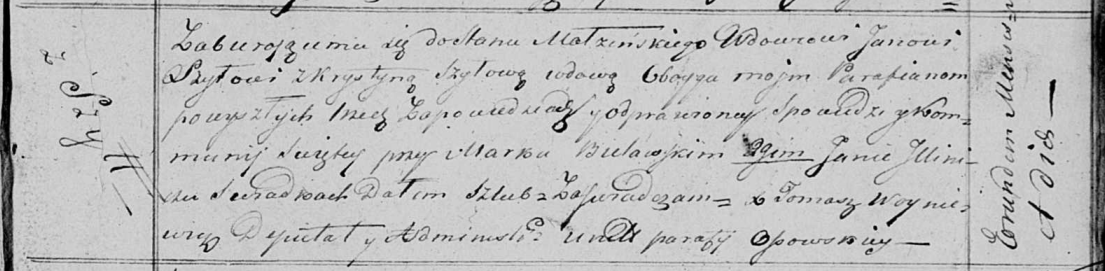 z Szył
11
Zabirającemu się do stanu Małżeńskiego Wdowcowi Janowi
Szyłowi z Krystyną Szyłową wdową Oboyga moim Parafianom
powyszłych trzech Zapowiedziach y odprawioney Spowiedzi y Kom=
munij Swiętey przy Marku Bielawskim 2gim Janie Ilini=
czu Swiadkach Dałem Szlub = Zaswiadczam = X Tomasz Woynie=
wicz Deputat y Administr: parafij Osowskiey —
Eorundem Mensis
et die —